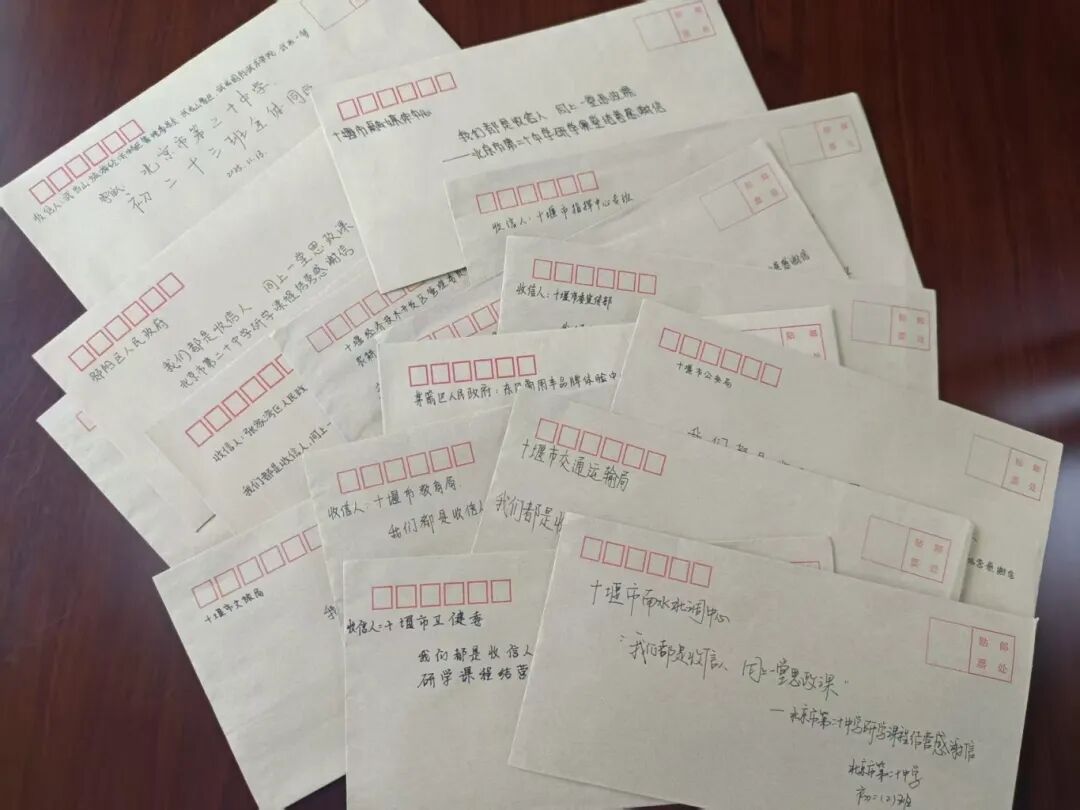 收信人：武当山旅游经济特区管理委员会
寄: 北京市第二十中学
初二十三班全体同
2025.11.13.
十堰市融媒体中心
我们都是收信人 同上一堂思政课
——北京市第二十中学研学课程结营感谢信
贴 邮
票 处
收信人：十堰市指挥中心专班
贴 邮
票 处
郧阳区人民政府
我们都是收信人 同上一堂思政课
北京市第二十中学研学课程结营感谢信
十堰经济技术开发区管理委
收信人：十堰市委宣传部
贴 邮
票 处
收信人：张家湾区人民政
我们都是收信人，同上一
茅箭区人民政府：东风商用车品牌体验中
十堰市公安局
我们都是
贴 邮
票 处
收信人：十堰市教育局
我们都是收信人
十堰市交通运输局
我们都是收
贴 邮
票 处
结营感谢信
十堰市文旅局
我
收信人：十堰市卫健委
我们都是收信人
研学课程结营
十堰市南水北调中心
“我们都是收信人 同上一堂思政课”
—北京市第二十中学研学课程结营感谢信
北京市第二十中学
初二(2)班
贴 邮
票 处